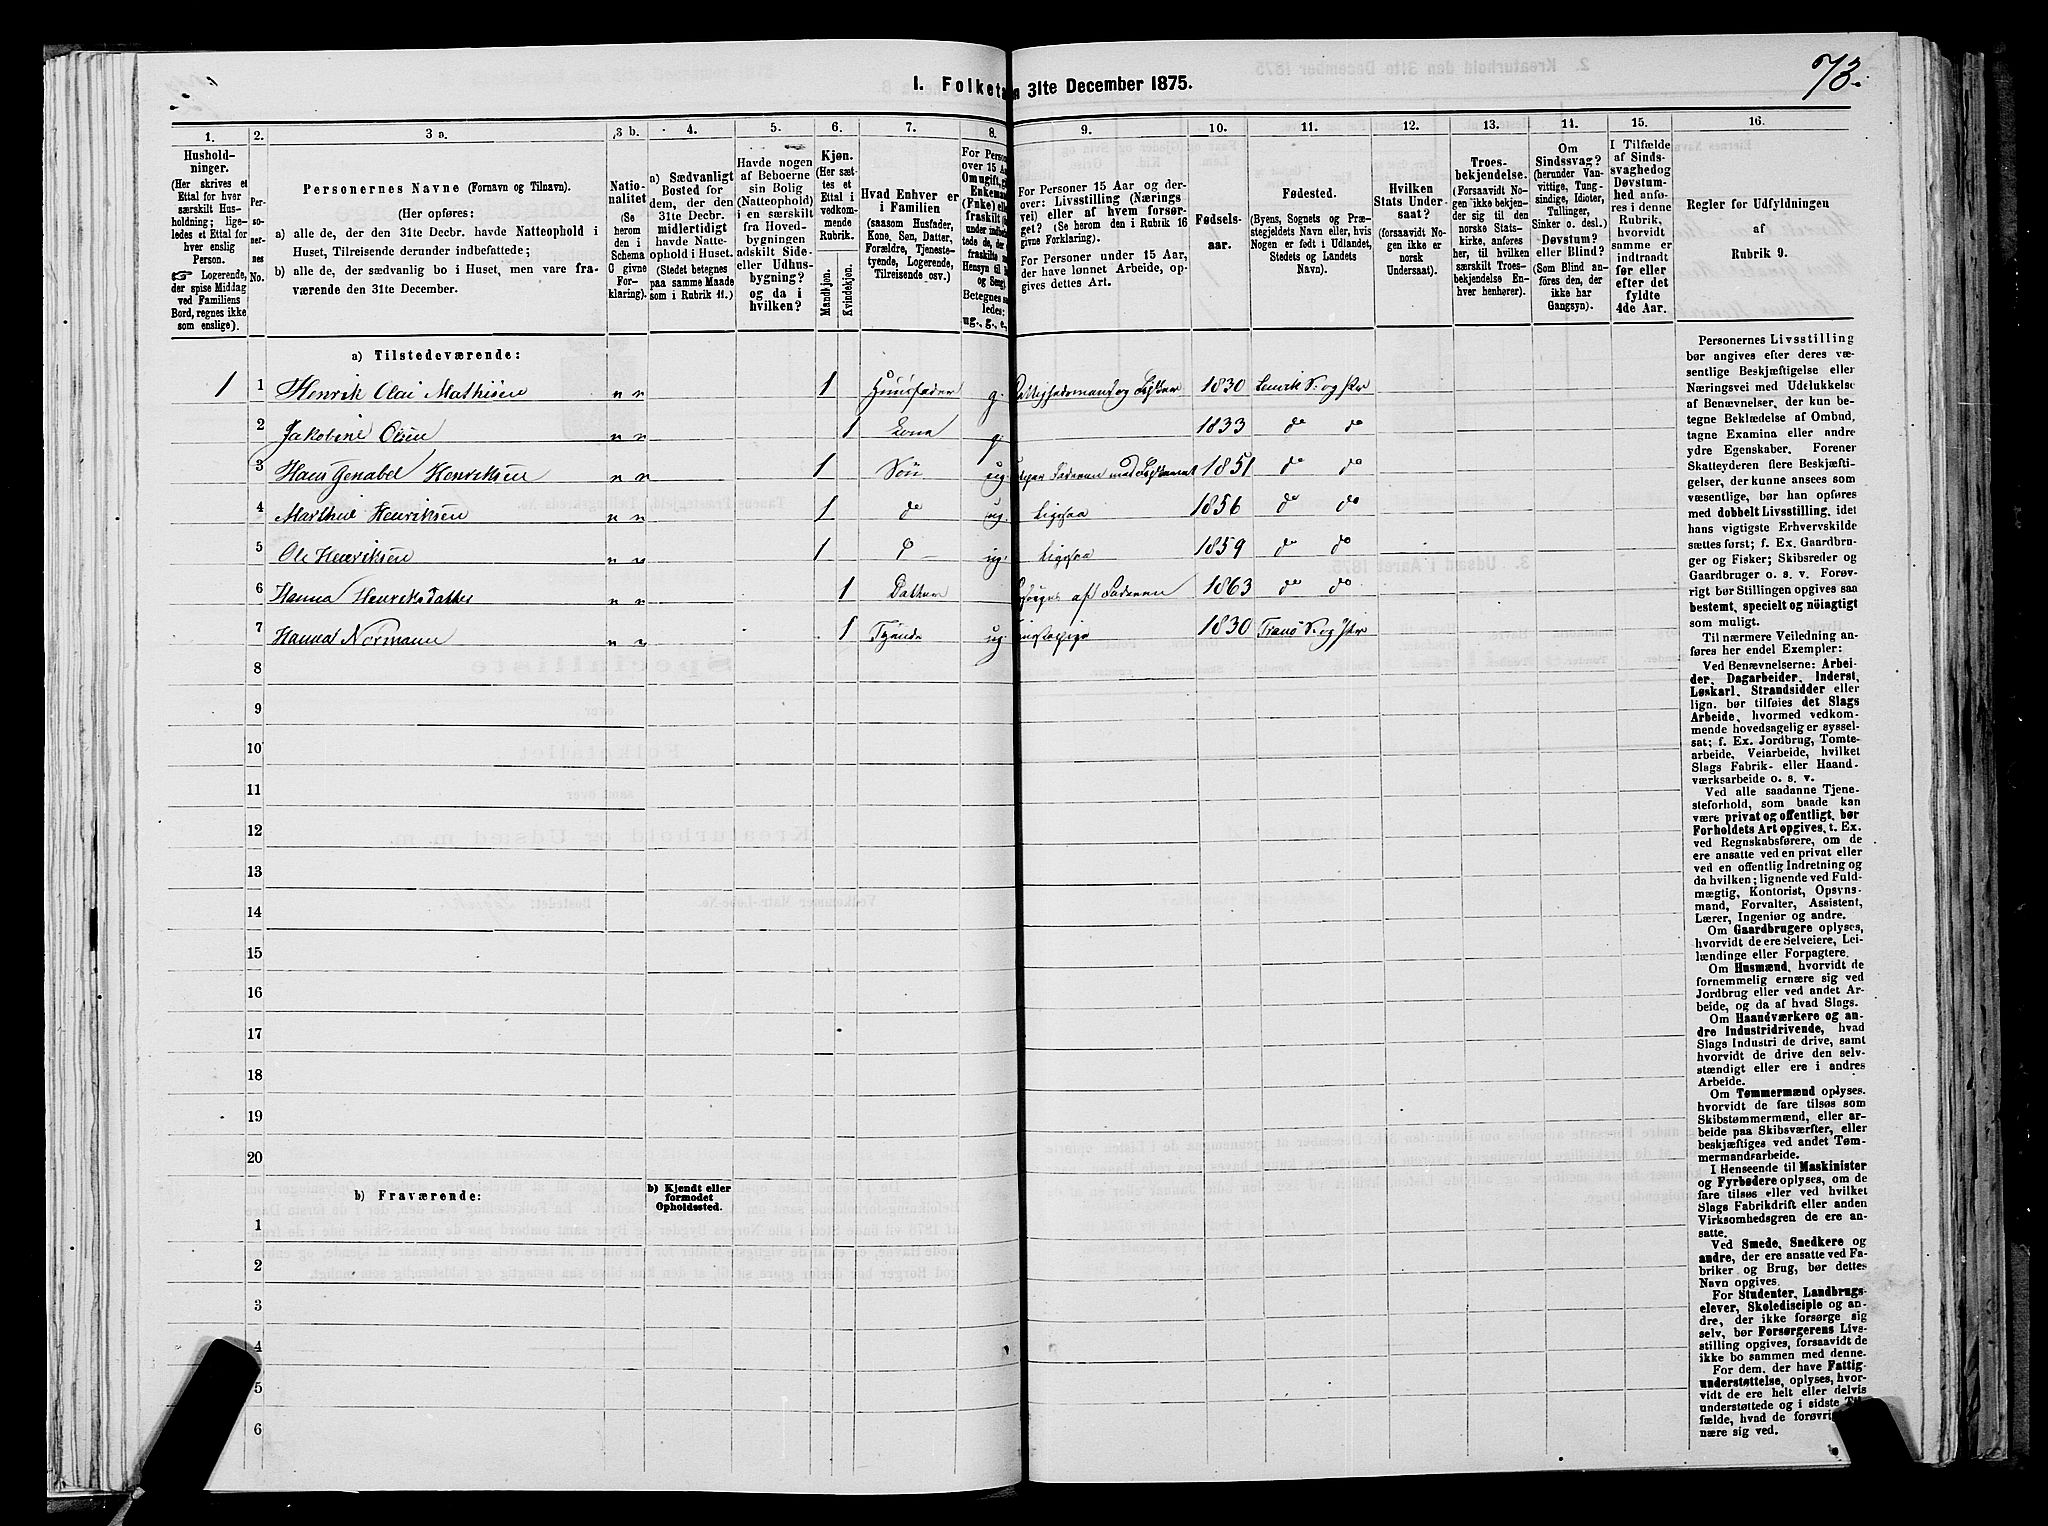 73.
I. Folketa
n 31te December 1875.
1. 2. 3 a. 3 b. 4. 5. 6. 7. 8. 9. 10. 11. 12. 13. 14. 15. 16.
Hushold-
ninger.
(Her skrives et
Ettal for hver
særskilt Hus-
holdning; lige-
ledes et Ettal for
hver enslig
Person.
☞ Logerende,
der spise Middag
ved Familiens
Bord, regnes ikke
som enslige).
Per-
so-
ner-
nes
No.
Personernes Navne (Fornavn og Tilnavn).
(Her opføres:
a) alle de, der den 31te Decbr. havde Natteophold i
Huset, Tilreisende derunder indbefattede;
b) alle de, der sædvanlig bo i Huset, men vare fra-
værende den 31te December).
Natio-
nalitet
(Se
herom
den i
Schema
O givne
For-
klaring).
a) Sædvanligt
Bosted for
dem, der den
31te Decbr.
midlertidigt
havde Natte-
ophold i Huset.
(Stedet betegnes
paa samme Maade
som i Rubrik 11.)
Havde nogen
af Beboerne
sin Bolig
(Natteophold)
i en særskilt
fra Hoved-
bygningen
adskilt Side-
eller Udhus-
bygning?
og da i
hvilken?
Kjøn.
(Her sæt-
tes et
Ettal i
vedkom-
mende
Rubrik.
Mandkjøn.
Kvindekjøn.
Hvad Enhver er
i Familien
(saasom Husfader,
Kone, Søn, Datter,
Forældre, Tjeneste-
tyende, Logerende,
Tilreisende osv.)
For Person
over 15 Aar
Om ugift, gi
Enkeman
(Fnke) ell
fraskilt
Betegnes sa
ledes:
ug., g., e.,
For Personer 15 Aar og der-
over: Livsstilling (Nærings
vei) eller af hvem forsør-
get? (Se herom den i Rubrik 16
givne Forklaring).
For Personer under 15 Aar,
der have lønnet Arbeide, op-
gives dettes Art.
Fødsels-
aar.
Fødested.
(Byens, Sognets og Præ-
stegjeldets Navn eller, hvis
Nogen er født i Udlandet,
Stedets og Landets
Navn).
Hvilken
Stats Under-
saat?
(forsaavidt No-
gen ikke er
norsk
Undersaat).
Troes-
bekjendelse.
(Forsaavidt No-
gen ikke bekjen-
der sig til den
norske Stats-
kirke, anføres
her, til hvilken
særskilt Troes-
bekjendelse En-
hver henhører).
Om
Sindssvag?
(herunder Van-
vittige, Tung-
sindige, Idioter,
Tullinger,
Sinker o. desl.).
Døvstum?
eller Blind?
(Som Blind an-
føres den, der
ikke har
Gangsyn).
I Tilfælde
af Sinds-
svaghed og
Døvstum-
hed anfø-
res i denne
Rubrik,
hvorvidt
samme er
indtraadt
før eller
efter det
fyldte
4de Aar.
Regler for Udfyldningen
af
Rubrik 9.
a) Tilstedeværende:
1 1 Henrik Olai Mathisen n n 1 Huusfader g. 1830 Lenvik S. og Pr
2 Jakobine Olsen n n 1 Kona g. 1833 do do
3 Hans Genabel Henriksen n n 1 Søn ug. 1851 do do
4 Marthin Henriksen n n 1 do ug. Ligesaa 1856 do do
5 Ole Henriksen n n 1 ug. Ligesaa 1859 do do
6 Hanna Henriksdatter n n 1 Datter af Faderen 1863 do do
7 Hanna Normann n n 1 Tyende ug. 1830 Tranø S. og Pr
8
9
10
11
12
13
14
15
16
17
18
19
20
b) Fraværende:
b) Kjendt eller
formodet
Opholdssted.
1
2
3
4
5
6
Personernes Livsstilling
bør angives efter deres væ-
sentlige Beskjæftigelse eller
Næringsvei med Udelukkelse
af Benævnelser, der kun be-
tegne Beklædelse af Ombud,
tagne Examina eller andre
ydre Egenskaber. Forener
Skatteyderen flere Beskjæfti-
gelser, der kunne ansees som
væsentlige, bør han opføres
med dobbelt Livsstilling, idet
hans vigtigste Erhvervskilde
sættes først; f. Ex. Gaardbru-
ger og Fisker; Skibsreder og
Gaardbruger o. s. v. Forøv-
rigt bør Stillingen opgives saa
bestemt, specielt og nöiagtigt
som muligt.
Til nærmere Veiledning an-
føres her endel Exempler:
Ved Benævnelserne: Arbei-
der, Dagarbeider, Inderst,
Løskarl, Strandsidder eller
lign. bør tilføies det Slags
Arbeide, hvormed vedkom-
mende hovedsagelig er syssel-
sat; f. Ex. Jordbrug, Tomte-
arbeide, Veiarbeide, hvilket
Slags Fabrik- eller Haand-
værksarbeide o. s. v.
Ved alle saadanne Tjene-
steforhold, som baade kan
være privat og offentligt, bør
Forholdets Art opgives, t. Ex.
ved Regnskabsførere, om de
ere ansatte ved en privat eller
ved en offentlig Indretning og
da hvilken; lignende ved Fuld-
mægtig, Kontorist, Opsyns-
mand, Forvalter, Assistent,
Lærer, Ingeniør og andre.
Om Gaardbrugere oplyses,
hvorvidt de ere Selveiere, Lei-
lændinge eller Forpagtere.
Om Husmænd, hvorvidt de
fornemmelig ernære sig ved
Jordbrug eller ved andet Ar-
beide, og da af hvad Slags.
Om Haandværkere og an-
dre Industridrivende, hvad
Slags Industri de drive, samt
hvorvidt de drive den selv-
stændigt eller ere i andres
Arbeide.
Om Tømmermænd oplyses.
hvorvidt de fare tilsøs som
Skibstømmermænd, eller ar-
beide paa Skibsværfter, eller
beskjæftiges ved andet Tøm-
mermandsarbeide.
I Henseende til Maskinister
og Fyrbødere oplyses, om de
fare tilsøs eller ved hvilket
Slags Fabrikdrift eller anden
Virksomhedsgren de ere an-
satte.
Ved Smede, Snedkere og
andre, der ere ansatte ved Fa-
briker og Brug, bør dettes
Navn opgives.
For Studenter, Landbrugs-
elever, Skoledisciple og an-
dre, der ikke forsørge sig
selv, bør Forsørgerens Livs-
stilling opgives, forsaavidt de
ikke bo sammen med denne.
For dem, der have Fattig-
understøttelse, oplyses, hvor-
vidt de ere helt eller delvis
understøttede og i sidste Til-
fælde, hvad de forøvrigt
nære sig ved.